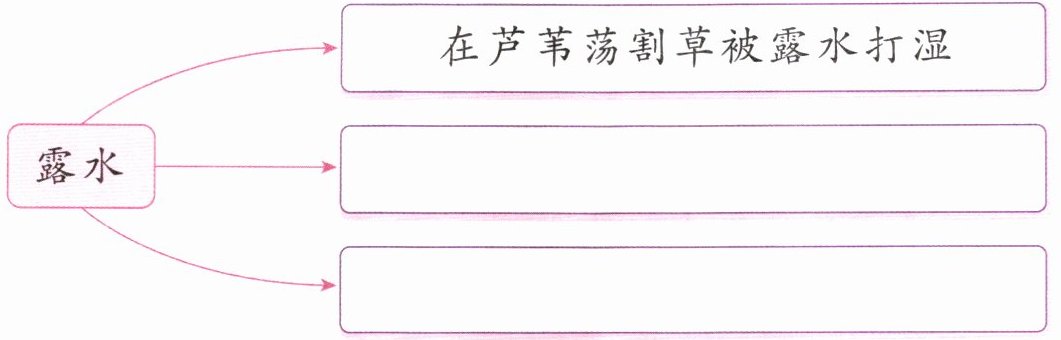 在芦苇荡割草被露水打湿
露水